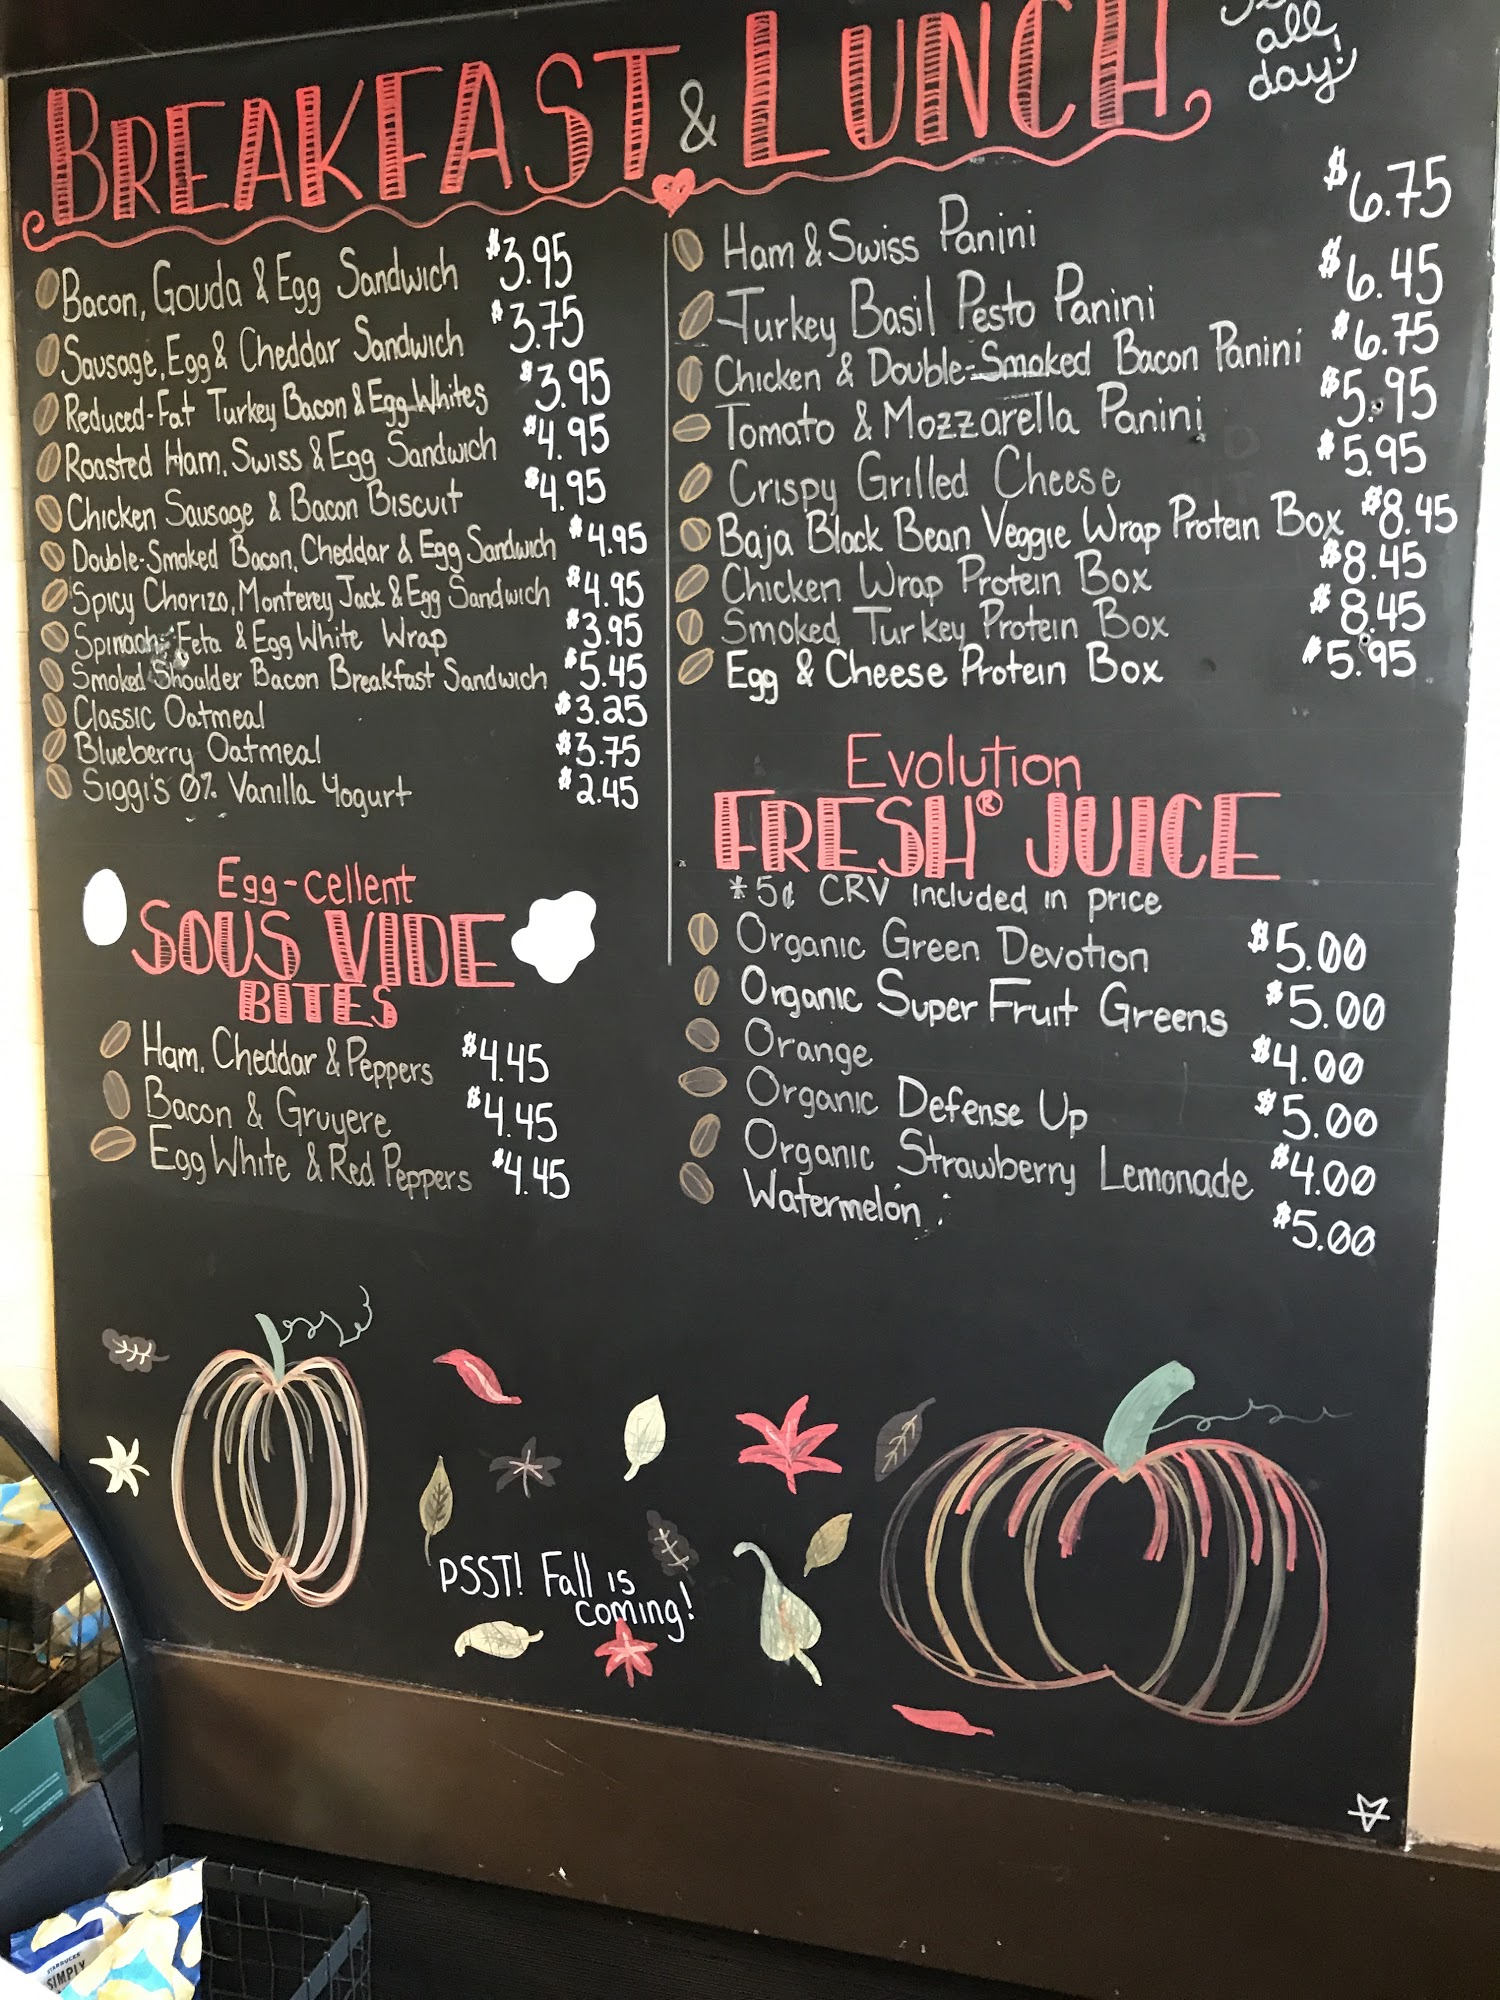 BREAKFAST & LUNCH
all
day!
Bacon, Gouda & Egg Sandwich $3.95
Sausage, Egg & Cheddar Sandwich $3.75
Reduced-Fat Turkey Bacon & Egg Whites $3.95
Roasted Ham, Swiss & Egg Sandwich $4.95
Chicken Sausage & Bacon Biscuit $4.95
Double-Smoked Bacon, Cheddar & Egg Sandwich $4.95
Spicy Chorizo, Monterey Jack & Egg Sandwich $4.95
Spinach, Feta & Egg White Wrap $3.95
Smoked Shoulder Bacon Breakfast Sandwich $5.45
Classic Oatmeal $3.25
Blueberry Oatmeal $3.75
Siggi's 0% Vanilla Yogurt $2.45
Egg-cellent
SOUS VIDE
BITES
Ham, Cheddar & Peppers $4.45
Bacon & Gruyere $4.45
Egg White & Red Peppers $4.45
Ham & Swiss Panini $6.75
Turkey Basil Pesto Panini $6.45
Chicken & Double-Smoked Bacon Panini $6.75
Tomato & Mozzarella Panini $5.95
Crispy Grilled Cheese $5.95
Baja Black Bean Veggie Wrap Protein Box $8.45
Chicken Wrap Protein Box $8.45
Smoked Turkey Protein Box $8.45
Egg & Cheese Protein Box $5.95
Evolution
FRESH® JUICE
*5¢ CRV included in price
Organic Green Devotion $5.00
Organic Super Fruit Greens $5.00
Orange $4.00
Organic Defense Up $5.00
Organic Strawberry Lemonade $4.00
Watermelon $5.00
PSST! Fall is
coming!
STARBUCKS
SIMPLY